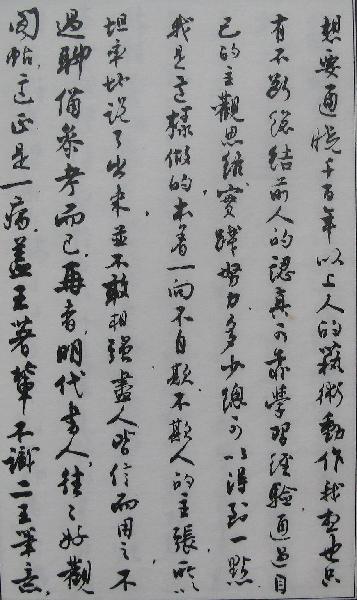 想要通曉千百年以上人的藝術動作我想也只
有不斷總結前人的認真可靠學習經驗通過自
己的主觀思維實踐努力多少總可以得到一點
我是這樣做的本著一向不自欺不欺人的主張所以
坦率地說了出來並不敢相強盡人皆信而用之不
過聊備參考而已再者明代書人往々好觀
閣帖這正是一病蓋王著輩不識二王筆意